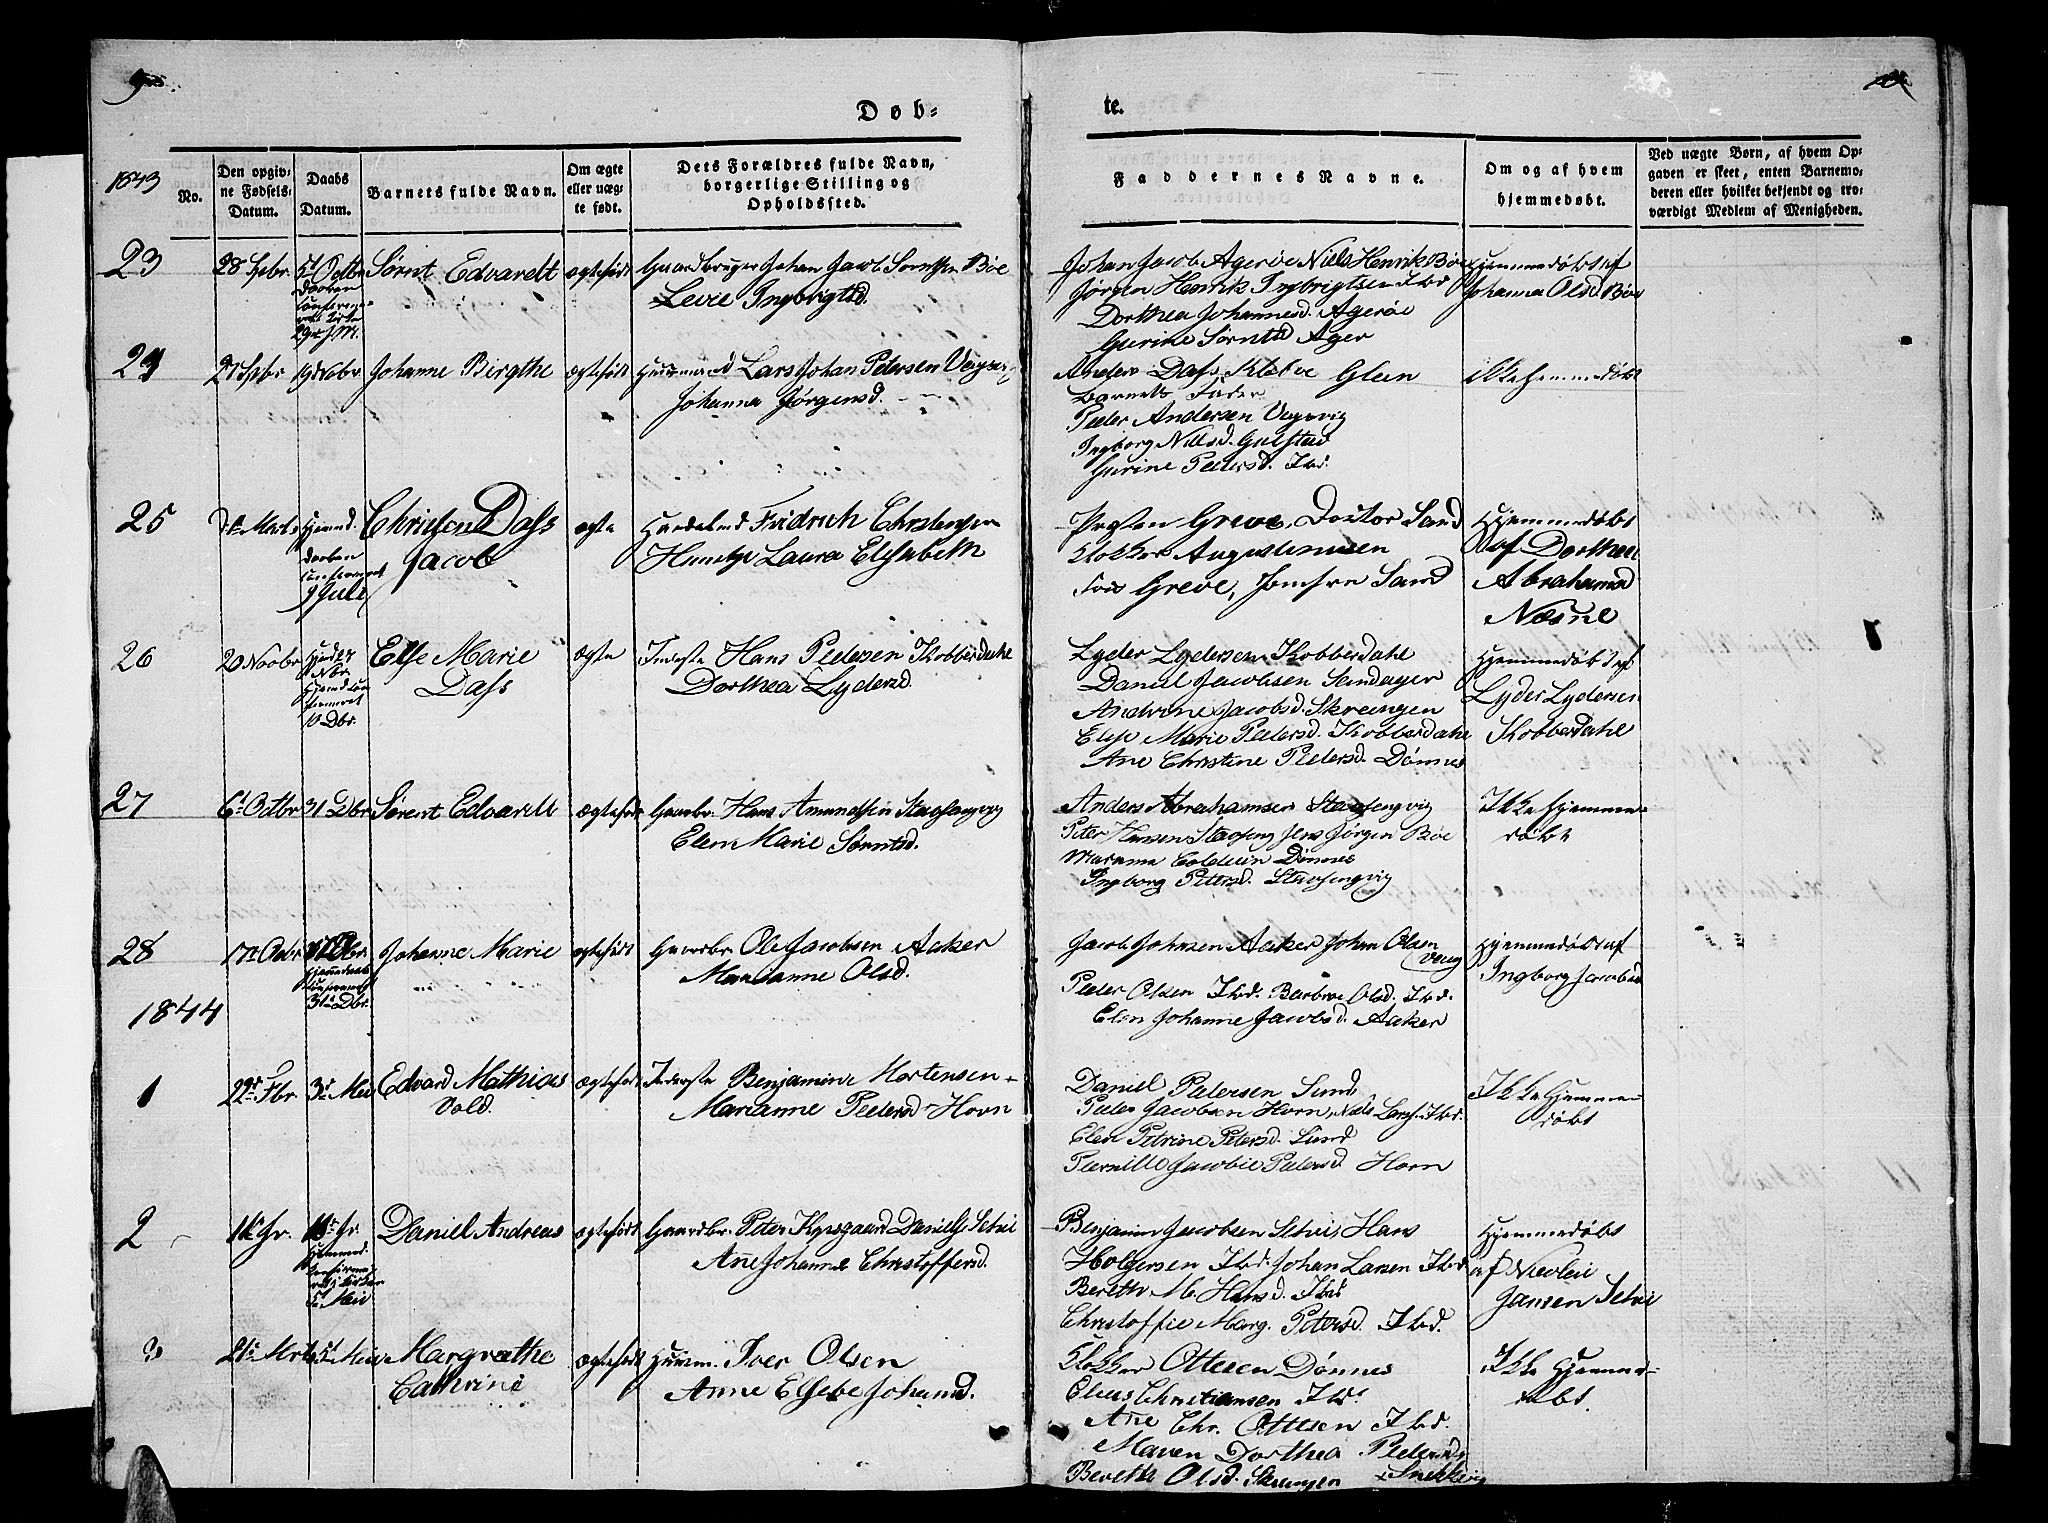 Døb-
te.
1843
No.
Den opgiv-
ne Fødsels-
Datum.
Daabs
Datum.
Barnets fulde Navn.
Om ægte
eller uæg-
te født.
Dets Forældres fulde Navn,
borgerlige Stilling og
Opholdssted.
Faddernes Navne.
Om og af hvem
hjemmedøbt.
Ved uægte Børn, af hvem Op-
gaven er skeet, enten Barnemo-
deren eller hvilket bekjendt og tro-
værdigt Medlem af Menigheden.
23
28 Spbr
Sørnt Edvardt
ægtefødt
Gaardbruger Johan Jacob Sørntsen Bøe
Levie Ingbrigtsd.
Johan Jacob Agerøe Niels Henrik Bøe
Jørgen Henrik Ingbrigtsen Ibd
Dorthea Johannesd. Agerøe
Gurine Sørntsd Ager
Hjemmedøbt af
Johanna Olsd Bøe
24
19 Nobr
Johanne Birgthe
ægtefødt
Huusmand Lars Johan Petersen
Johanna Jørgensd.
Anders Dass Klebve Glein
Barnets Fader
Peder Andersen
Ingborg Nilsd. Gulstad
Gurine Pedersd. Ibd.
ikke hjemmedøbt
25
Marts
Hjemd.
9 Juli
Christen Dass
Jacob
ægte
Fridrich Christensen
Laura Elisabeth
Presten Greve, Doctor Sand
Klokker Augustinusen
Greve, Sand
Hjemmedøbt
af Dorthea
Abrahamsd
Næsne
26
20 Novbr
10 Dbr.
Else Marie
Dass
ægte
Inderste Hans Pedersen Kobberdahl
Dorthea Lydersd.
Lyder Lydersen Kobberdahl
Daniel Jacobsen Sandager
Andrine Jacobsd. Skrungen
Else Marie Pedersd. Kobberdahl
Ane Christine Pedersd. Dønnes
Hjemmedøbt af
Lyder Lydersen
Kobberdahl
27
6t Octbr
31 Dbr
Sørent Edvardt
ægtefødt
Gaardbr. Hans Amundsen Stavsengvig
Elen Marie Sørntsd.
Anders Abrahamsen Stavsengvig
Peter Hansen Stavseng Jens Jørgen Bøe
Marianna Coldevin Dønnes
Ingborg Petersd. Stavsengvig
Ikke hjemme-
døbt
28
31te Dbr.
Johanne Marie
ægtefødt
Gaardbr. Ole Jacobsen Aaker
Marianne Olsd.
Jacob Johnsen Aaker Johan Olsen
Peder Olsen Ibd. Barbroe Olsd. Ibd.
Elen Johanne Jacobsd. Aaker
Hjemmedøbt af
Ingborg Jacobsd
1844
1
22de Fbr.
3d Mei
Edvard Mathias
Vold.
ægtefødt
Inderste Benjamin Mortensen
Marianne Pedersd Horn
Daniel Petersen Sund
Peder Jacobsen Horn, Nils Larss. Ibd.
Elen Petrine Petersd. Sund
Pernille Jacobie Petersd Horn
Ikke Hjemme-
døbt
2
Daniel Andreas
ægtefødt
Gaardbr. Peter Daniels. Selvie
Ane Johanne Christoffersd.
Benjamin Jacobsen Selvie, Hans
Holgersen Ibd. Johan Larsen Ibd
Bereth M. Hansd. Ibd
Christoffie Marg. Petersd. Ibd.
Hjemmedøbt
af Nicolai
Jansen Selvie
3
5t Mei
Margrethe
Cathrine
ægtefødt
Huusm. Iver Olsen
Anne Elsebe Johansd.
Klokker Ottesen Dønnes
Elias Christiansen Ibd.
Ane Chr. Ottesen Ibd.
Maren Dorthea Pedersd
Berethe Olsd. Skrungen
Ikke Hjemme-
døbt